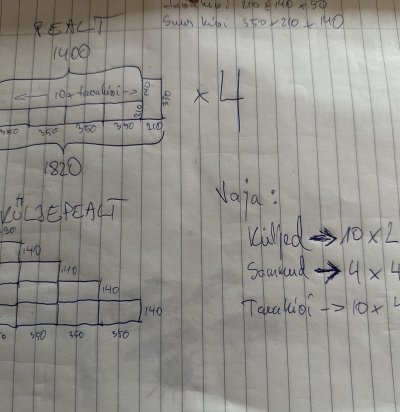 210 x 140 x 50
Suur kivi 350 x 210 x 140
PEALT
1400
10x Tarakivi
140
210
350
x 4
350 350 350 350 210
1820
Vaja:
KÜLJEPEALT
Küljed → 10 x 2
140
140
Sammud → 4 x 4
140
Tarakivi → 10 x 4
140
350 350 350